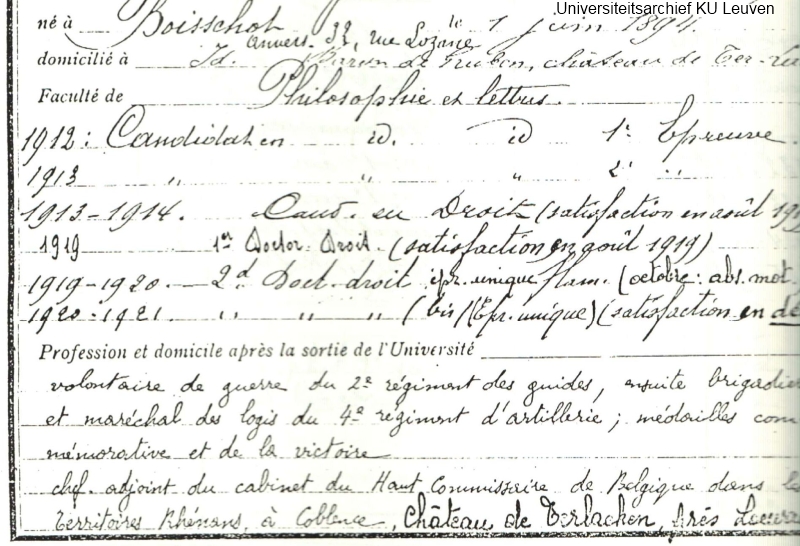 Universiteitsarchief KU Leuven
né à Boisschot le 1 juin 1894.
anvers. 32, rue Lozane
domicilié à Id. Baron de Truben, château de Ter-
Faculté de Philosophie et lettres.
1912: Candidat en id. id 1e Epreuve.
1913 " " " 2e "
1913-1914. Cand. en Droit (satisfaction en août 19
1919 1er Doctor. Droit. (satisfaction en août 1919)
1919-1920. 2d Doct. droit épr. unique flam. (octobre: abs. mot.
1920-1921. " " " (bis) (Epr. unique) (satisfaction en dé
Profession et domicile après la sortie de l'Université
volontaire de guerre du 2e régiment des guides, ensuite brigadie
et maréchal des logis du 4e régiment d'artillerie; médailles com
mémorative et de la victoire
chef-adjoint du cabinet du Haut Commissaire de Belgique dans le
Territoires Rhénans, à Coblence, Château de Terlachen, près Louva